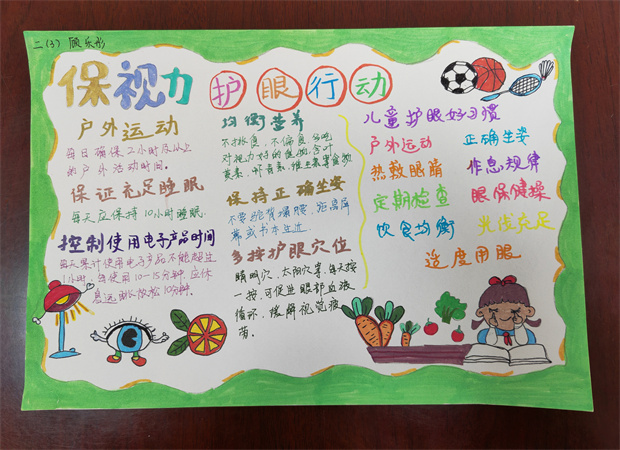 二(3) 顾乐彤
保视力 护眼行动
户外运动
每日确保2小时及以上
的户外活动时间。
保证充足睡眠
每天应保持10小时睡眠.
控制使用电子产品时间
每天累计使用电子产品不能超过
1小时,每使用10-15分钟,应休
息远眺放松10分钟.
均衡营养
不挑食,不偏食,多吃
对视力好的食物,含叶
黄素、叶青素、维生素等食物
保持正确坐姿
不要驼背塌腰,距离屏
幕或书本过近.
多按护眼穴位
睛明穴、太阳穴等,每天按
一按,可促进眼部血液
循环,缓解视觉疲
劳.
儿童护眼好习惯
户外运动 正确坐姿
热敷眼睛 作息规律
定期检查 眼保健操
饮食均衡 光线充足
适度用眼